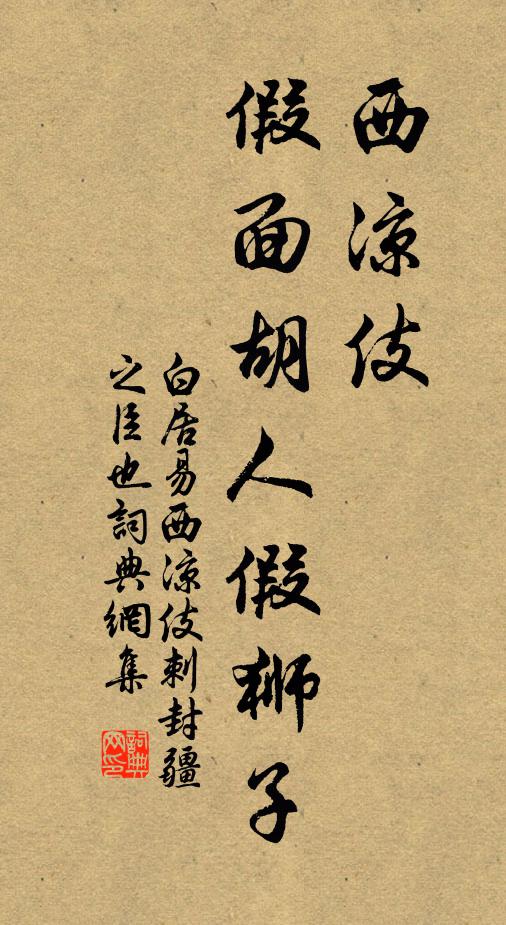 西凉伎
假面胡人假獅子
白居易西凉伎刺封疆
之臣也詞典網集
詞典
网印